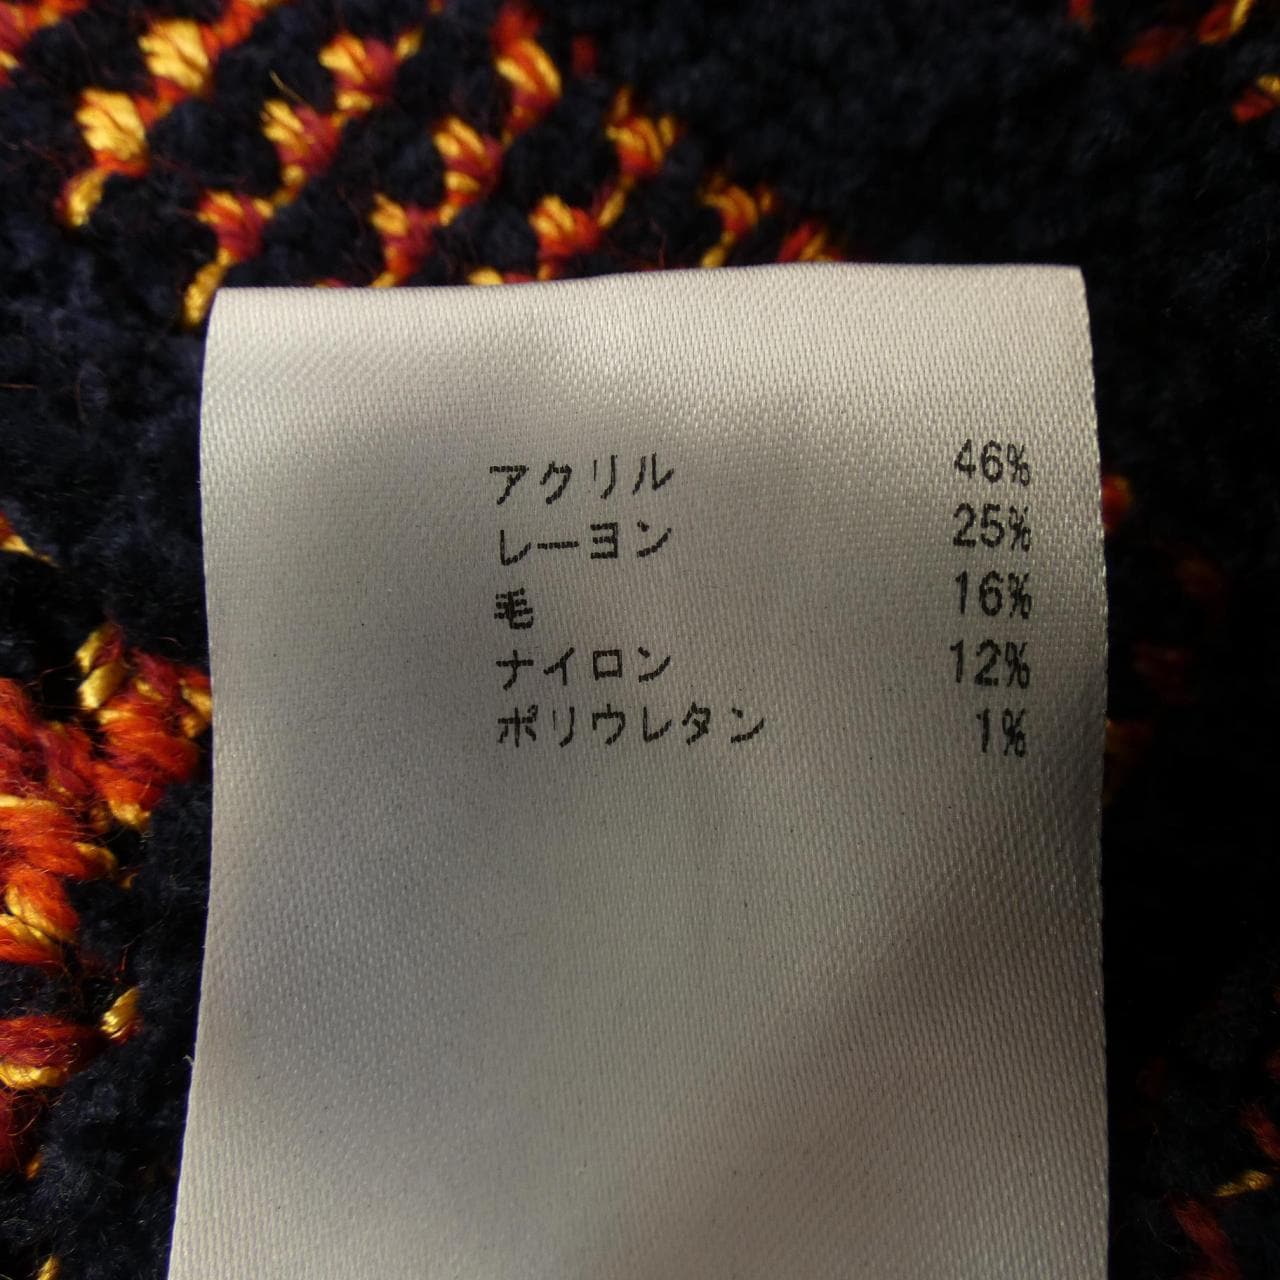 アクリル 46%
レーヨン 25%
毛 16%
ナイロン 12%
ポリウレタン 1%